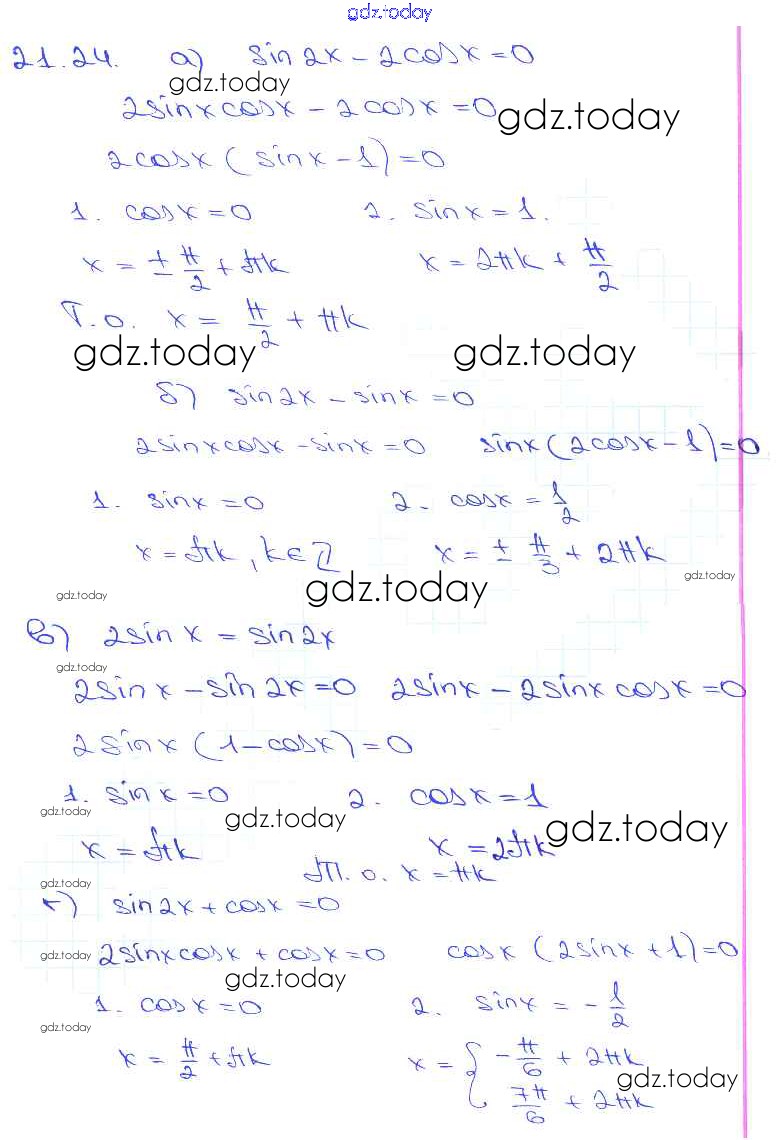 gdz.today
21.24. а) sin2x - 2cosx = 0
gdz.today
2sinxcosx - 2cosx = 0 gdz.today
2cosx (sinx - 1) = 0
1. cosx = 0 2. sinx = 1.
x = ± π/2 + πk x = 2πk + π/2
Т.о. x = π/2 + πk
gdz.today gdz.today
б) sin2x - sinx = 0
2sinxcosx - sinx = 0 sinx(2cosx - 1) = 0
1. sinx = 0 2. cosx = 1/2
x = πk, k ∈ Z x = ± π/3 + 2πk
gdz.today gdz.today gdz.today
в) 2sin x = sin2x
gdz.today
2sinx - sin 2x = 0 2sinx - 2sinx cosx = 0
2 sinx (1 - cosx) = 0
1. sin x = 0 2. cosx = 1
gdz.today gdz.today gdz.today
x = πk x = 2πk
Т.о. x = πk
gdz.today
г) sin2x + cosx = 0
gdz.today 2sinxcosx + cosx = 0 cosx (2sinx + 1) = 0
gdz.today
1. cosx = 0 2. sinx = - 1/2
gdz.today
x = π/2 + πk x = { - π/6 + 2πk
gdz.today
7π/6 + 2πk